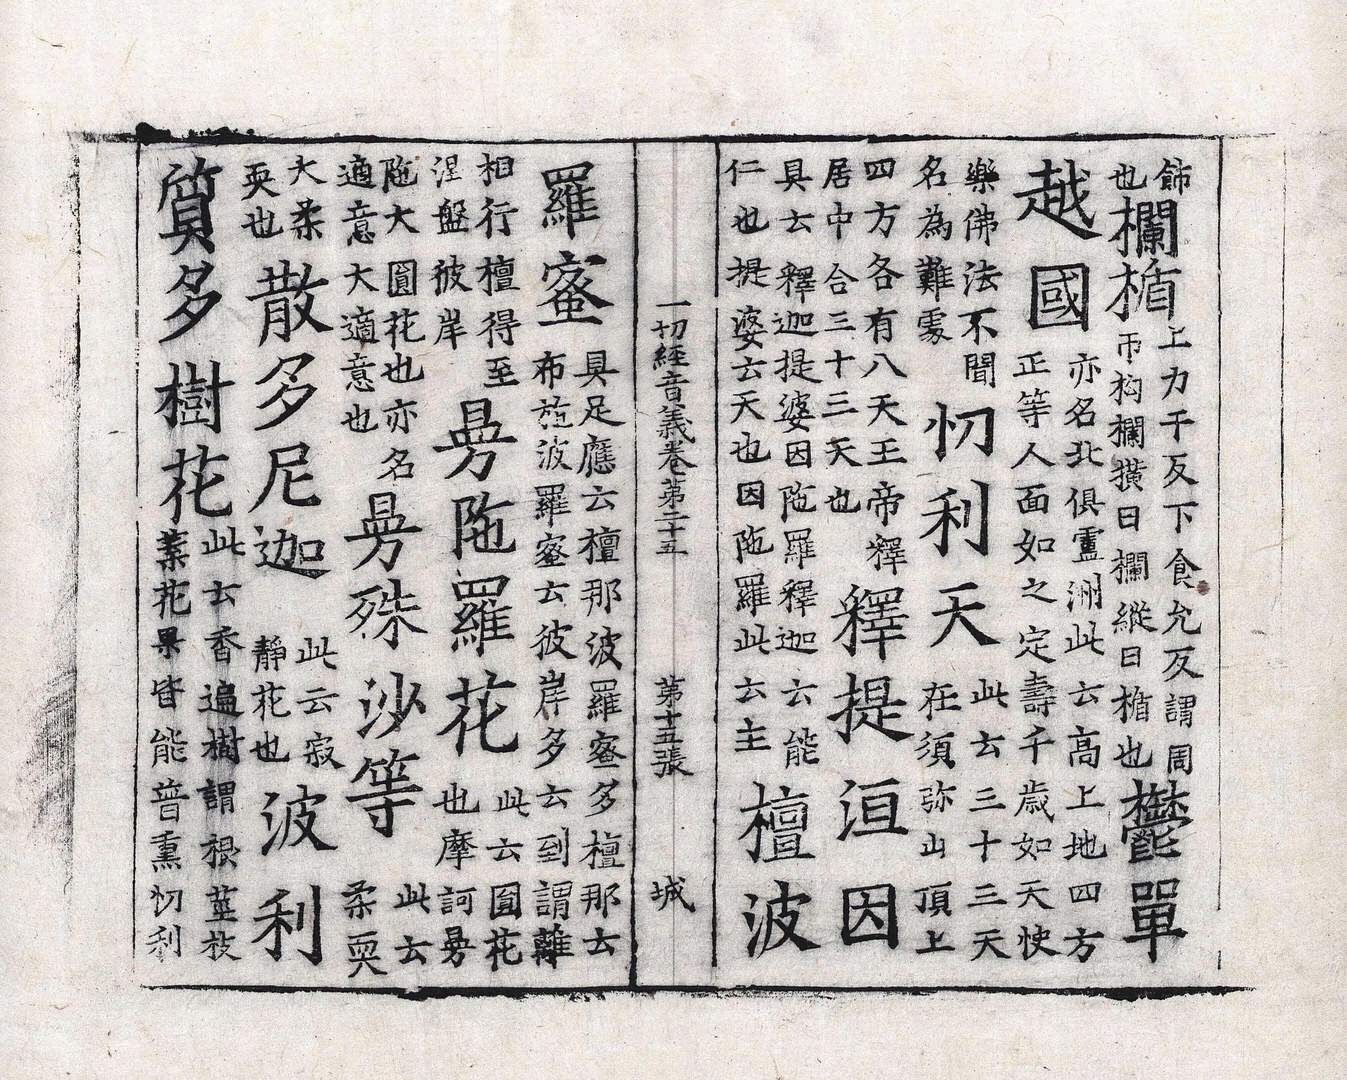 飾也欄楯上力干反下食允反謂周帀构欄撗曰欄縱曰楯也鬱單
越國亦名北俱盧洲此云高上地四方正等人面如之定壽千歲如天快
樂佛法不聞名為難處忉利天此云三十三天在須弥山頂上
四方各有八天王帝釋居中合三十三天也釋提洹因
具云釋迦提婆因陁羅釋迦云能仁也提婆云天也因陁羅此云主檀波
一切經音義卷第二十五 第十五張 城
羅蜜具足應云檀那波羅蜜多檀那云布施波羅蜜云彼岸多云到謂離
相行檀得至涅盤彼岸㬅陁羅花此云圓花也摩訶㬅
陁大圓花也亦名適意大適意也㬅殊沙等此云柔耎
大柔耎也散多尼迦此云寂靜花也波利
質多樹花此云香遍樹謂根莖枝葉花果皆能普熏忉利